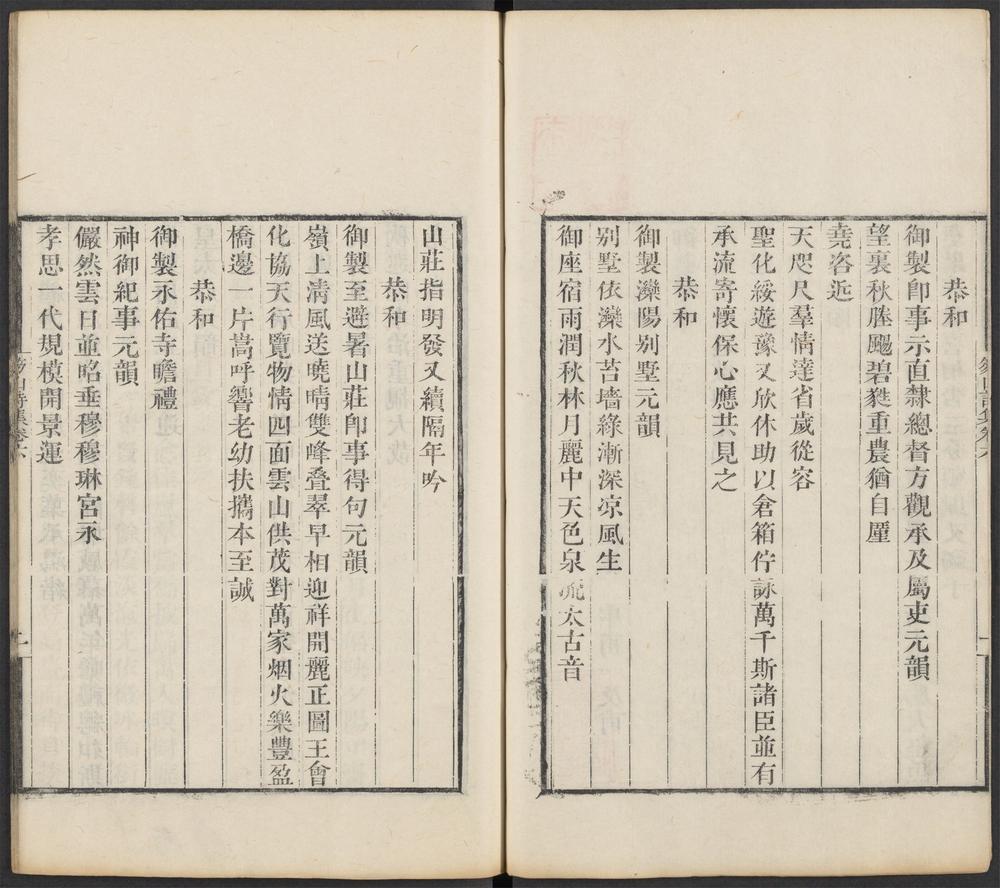 恭和
御製卽事示直隸總督方觀承及屬吏元韻
望裏秋塍颺碧蕤重農猶自廑
堯咨近
天咫尺羣情達省歲從容
聖化綏遊豫又欣休助以倉箱佇詠萬千斯諸臣並有
承流寄懷保心應共見之
恭和
御製灤陽别墅元韻
别墅依灤水苔墻綠漸深凉風生
御座宿雨潤秋林月麗中天色泉流太古音
山莊指明發又續隔年吟
恭和
御製至避暑山莊卽事得句元韻
嶺上清風送曉晴雙峰叠翠早相迎祥開麗正圖王會
化協天行覽物情四面雲山供茂對萬家烟火樂豐盈
橋邊一片嵩呼響老幼扶攜本至誠
恭和
御製永佑寺瞻禮
神御紀事元韻
儼然雲日並昭垂穆穆琳宮永
孝思一代規模開景運